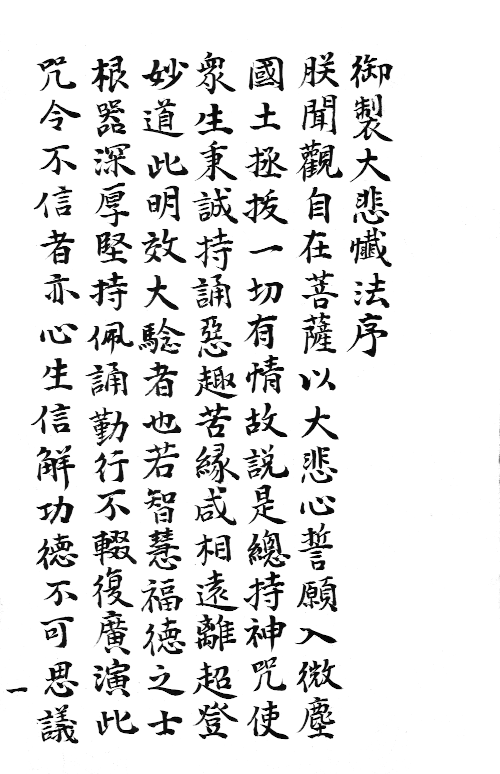 御製大悲懺法序
朕聞觀自在菩薩以大悲心誓願入微塵
國土拯拔一切有情故説是總持神咒使
衆生秉誠持誦惡趣苦緣咸相遠離超登
妙道此明效大驗者也若智慧福德之士
根器深厚堅持佩誦勤行不輟復廣演此
咒令不信者亦心生信解功德不可思議
一